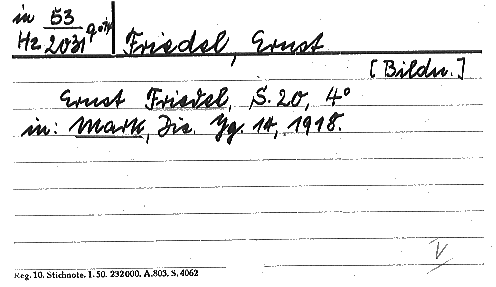 in 53
Hz 2031 Friedel, Ernst
[Bildn.]
Ernst Friedel, S. 20, 4°
in: Mark, Die. Jg. 14, 1918.
V
Reg. 10. Stichnote. I. 50. 232000. A.803. S. 4062